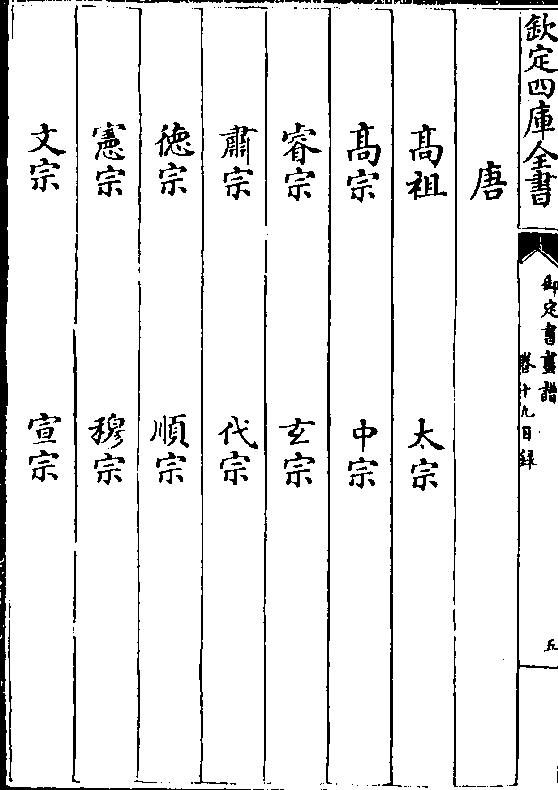 欽定四庫全書
御定書畫譜
卷十九目録
五
唐
髙祖
太宗
髙宗
中宗
睿宗
玄宗
肅宗
代宗
徳宗
順宗
憲宗
穆宗
文宗
宣宗